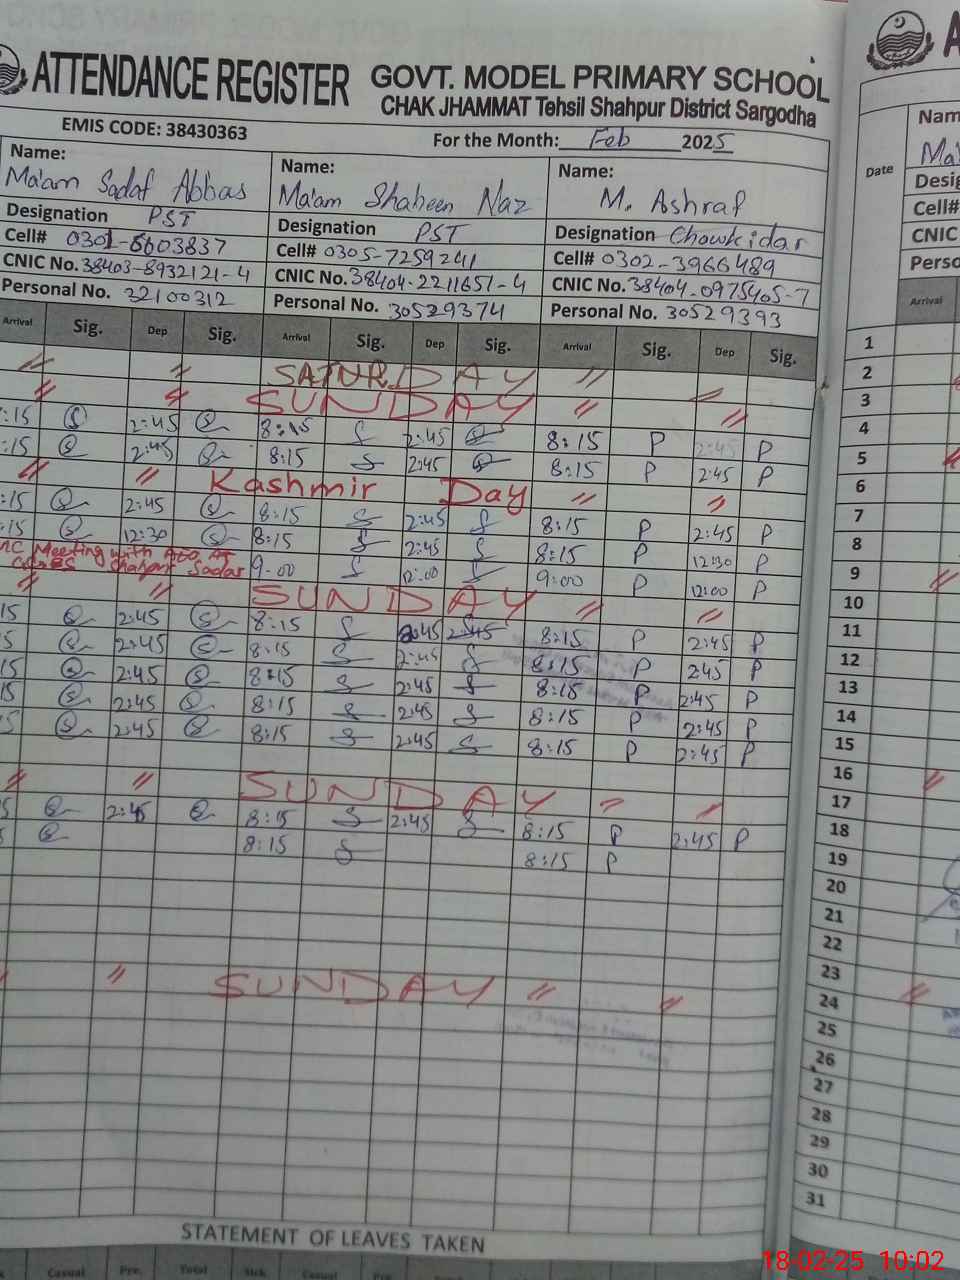 ATTENDANCE REGISTER GOVT. MODEL PRIMARY SCHOOL
CHAK JHAMMAT Tehsil Shahpur District Sargodha
EMIS CODE: 38430363 For the Month: Feb 2025
Name: Name: Name:
Ma'am Sadaf Abbas Ma'am Shaheen Naz M. Ashraf
Designation PST Designation PST Designation Chowkidar
Cell# 0301-6603837 Cell# 0305-7259241 Cell# 0302-3966489
CNIC No. 38403-8932121-4 CNIC No. 38404-2211651-4 CNIC No. 38404-0975405-7
Personal No. 32100312 Personal No. 30529374 Personal No. 30529393
Arrival Sig. Dep Sig. Arrival Sig. Dep Sig. Arrival Sig. Dep Sig.
SATURDAY
SUNDAY
:15 2:45 8:15 S 2:45 8:15 P 2:45 P
:15 2:45 8:15 S 2:45 8:15 P 2:45 P
Kashmir Day
:15 2:45 8:15 S 2:45 S 8:15 P 2:45 P
:15 12:30 8:15 S 2:45 S 8:15 P 12:30 P
Meeting with AEO AT Sadar 9:00 S 12:00 S 9:00 P 12:00 P
SUNDAY
15 2:45 8:15 S 2:45 2:45 8:15 P 2:45 P
5 2:45 8:15 S 2:45 S 8:15 P 2:45 P
15 2:45 8:15 S 2:45 S 8:15 P 2:45 P
15 2:45 8:15 S 2:45 S 8:15 P 2:45 P
5 2:45 8:15 S 2:45 S 8:15 P 2:45 P
SUNDAY
5 2:45 8:15 S 2:45 S 8:15 P 2:45 P
5 8:15 S 8:15 P
SUNDAY
STATEMENT OF LEAVES TAKEN
Casual Pre. Total Sick Casual Pre.
A
Nam
Ma'
Date
Desig
Cell#
CNIC
Perso
Arrival
1
2
3
4
5
6
7
8
9
10
11
12
13
14
15
16
17
18
19
20
21
22
23
24
25
26
27
28
29
30
31
18-02-25 10:02